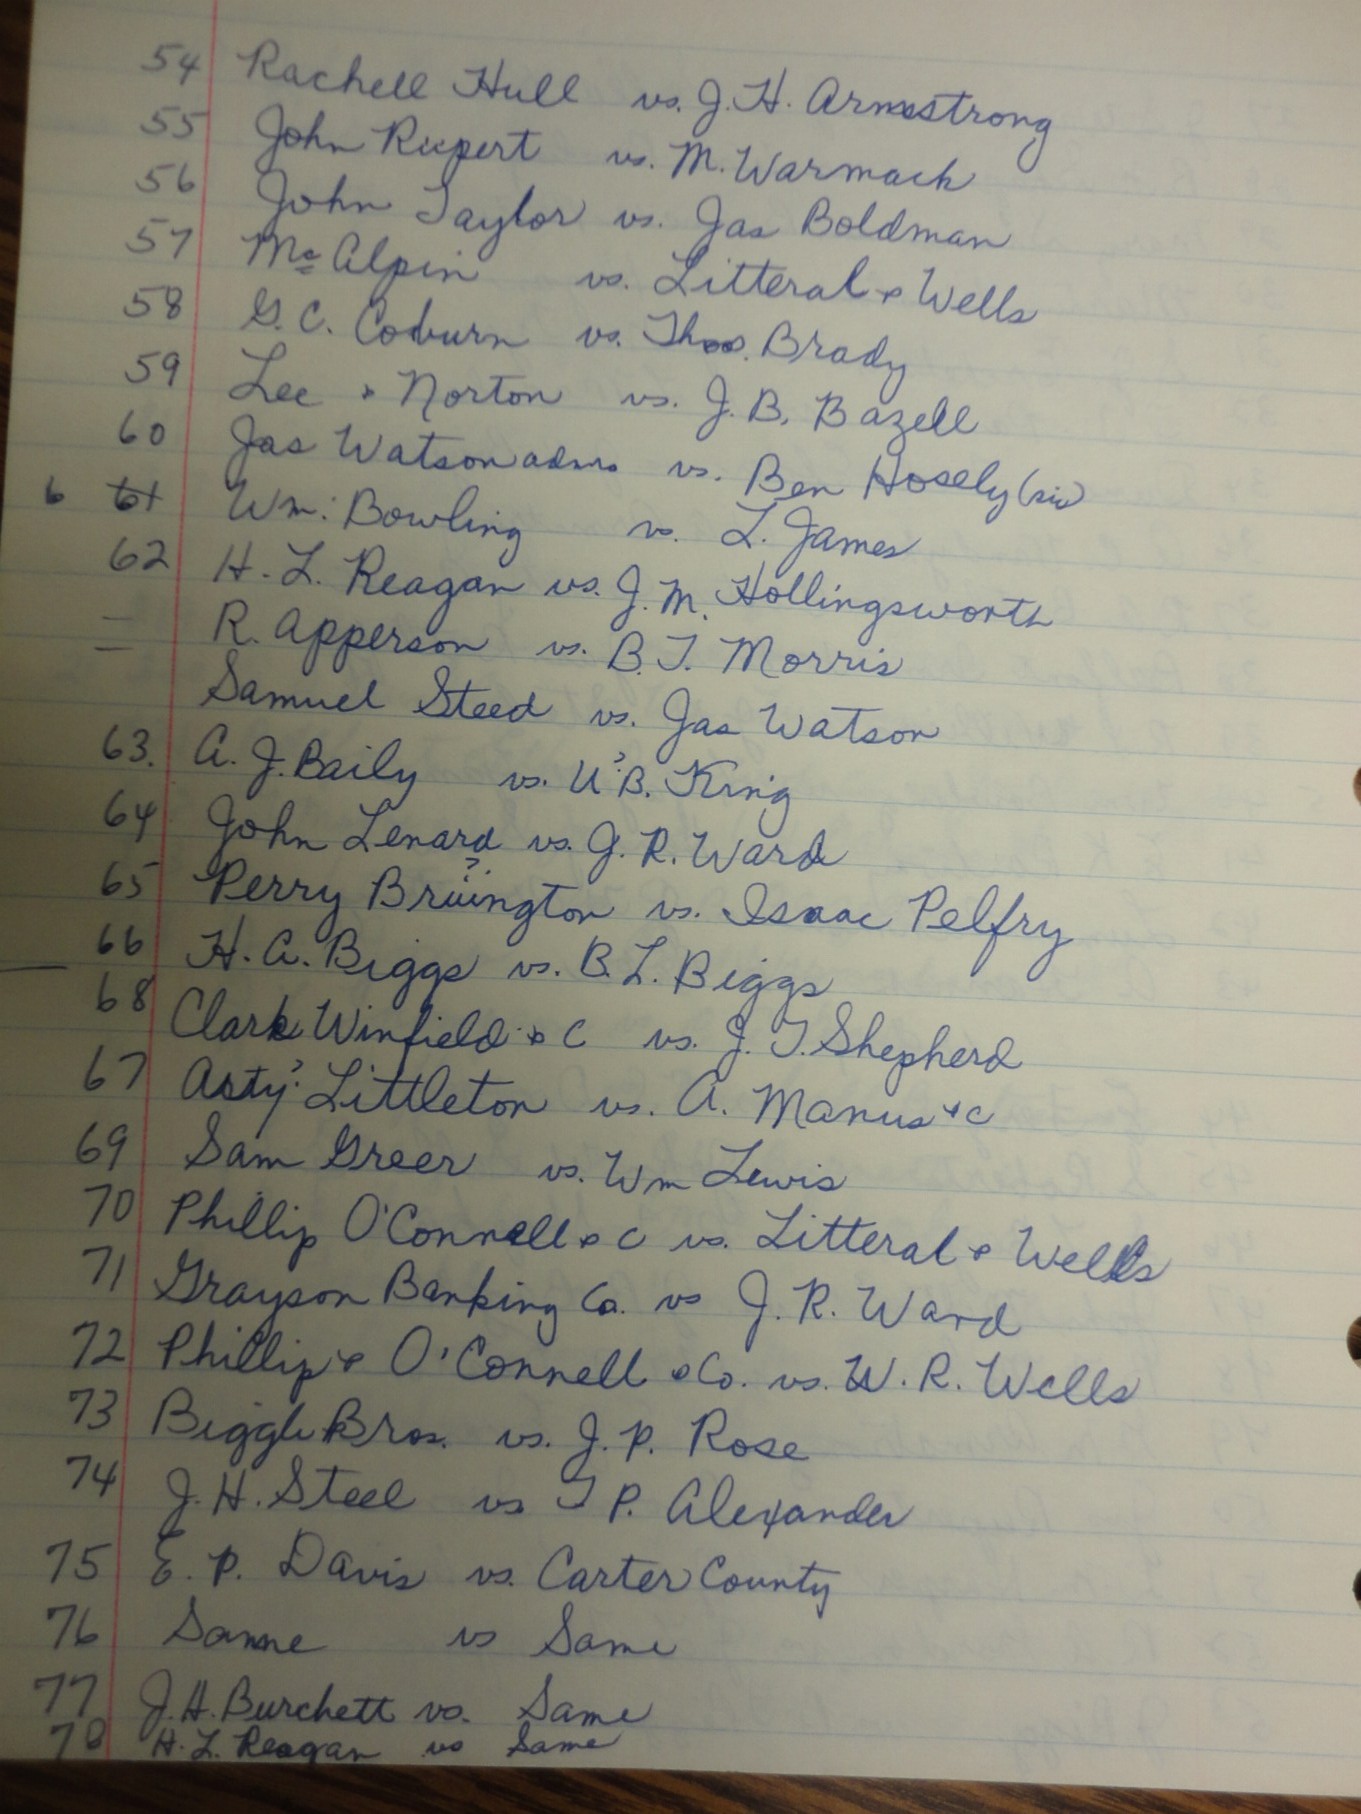 54 Rachell Hull vs. J. H. Armstrong
55 John Rupert vs. M. Warmack
56 John Taylor vs. Jas Boldman
57 McAlpin vs. Litteral & Wells
58 G. C. Coburn vs. Thos. Brady
59 Lee & Norton vs. J. B. Bazell
60 Jas Watson admr vs. Ben Hosely (sic)
6 61 Wm: Bowling vs. L. James
62 H. L. Reagan vs. J. M. Hollingsworth
— R. Apperson vs. B. T. Morris
— Samuel Steed vs. Jas Watson
63. A. J. Baily vs. U?B. King
64 John Lenard vs. J. R. Ward
65 Perry Bruington? vs. Isaac Pelfry
66 H. A. Biggs vs. B. L. Biggs
68 Clark Winfield & C vs. J. T. Shepherd
67 Asty? Littleton vs. A. Manus & C
69 Sam Greer vs. Wm Lewis
70 Phillip O'Connell & C vs. Litteral & Wells
71 Grayson Banking Co. vs J. R. Ward
72 Phillip & O'Connell & Co. vs. W. R. Wells
73 Biggle Bros. vs. J. P. Rose
74 J. H. Steel vs T P. Alexander
75 E. P. Davis vs. Carter County
76 Same vs Same
77 J. H. Burchett vs. Same
78 H. L. Reagan vs Same